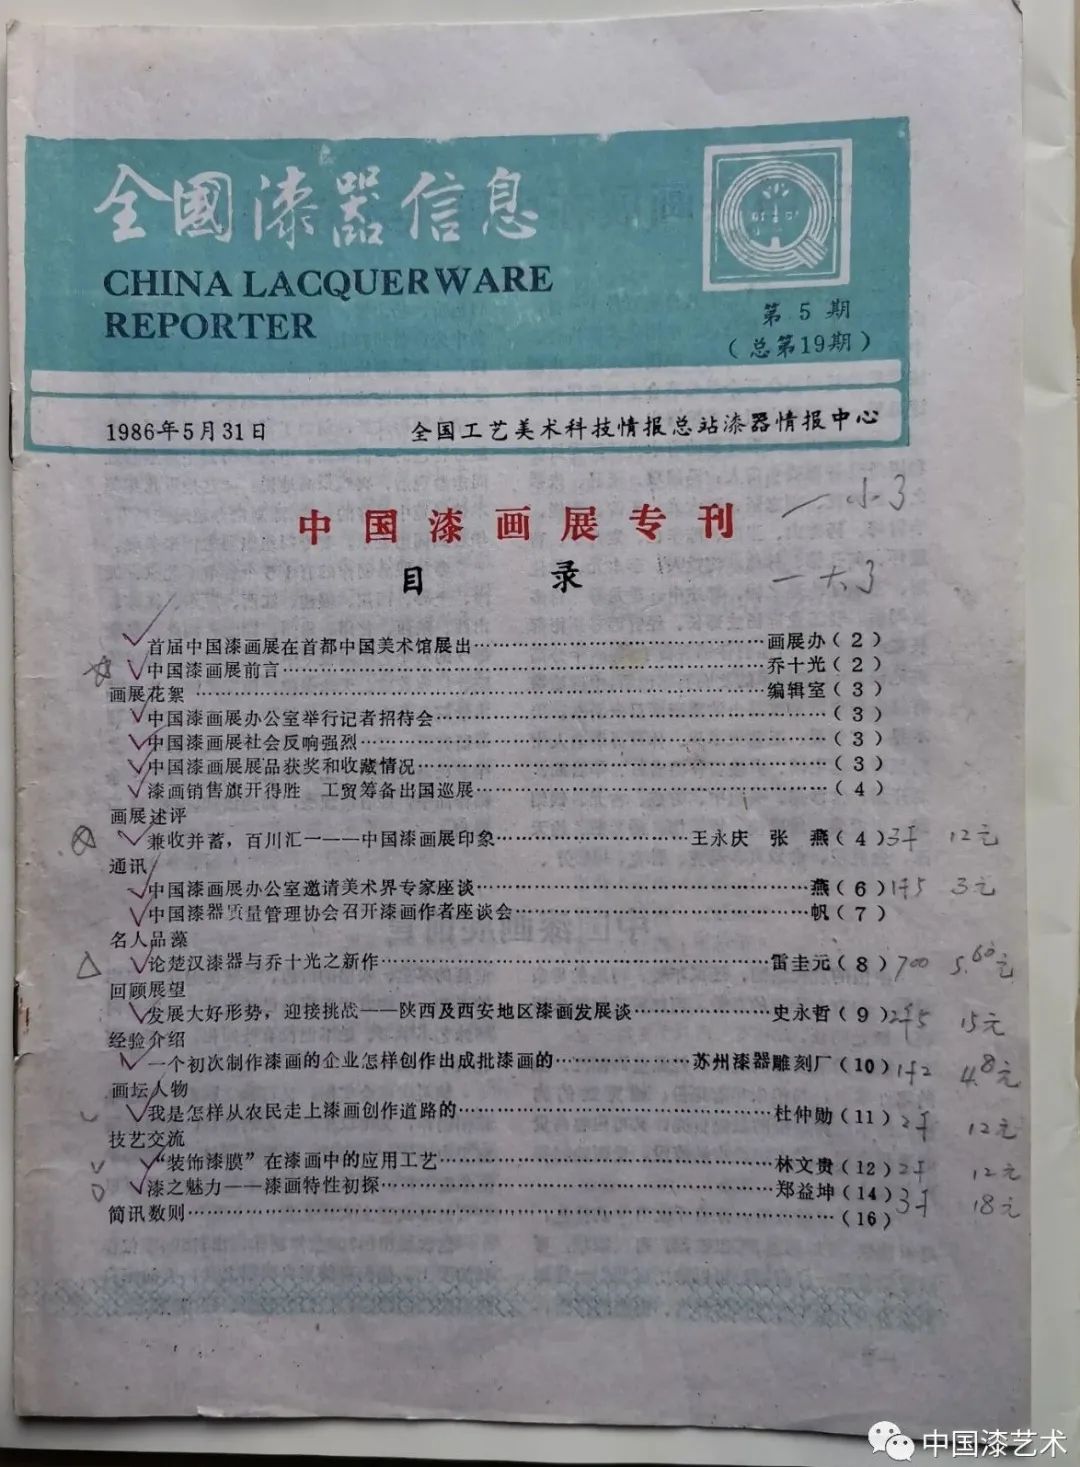 全國漆器信息
CHINA LACQUERWARE
REPORTER
第5期
（总第19期）
1986年5月31日 全国工艺美术科技情报总站漆器情报中心
中国漆画展专刊
一小3
目录
一大3
首届中国漆画展在首都中国美术馆展出……画展办（2）
中国漆画展前言……乔十光（2）
画展花絮……编辑室（3）
中国漆画展办公室举行记者招待会……（3）
中国漆画展社会反响强烈……（3）
中国漆画展展品获奖和收藏情况……（3）
漆画销售旗开得胜 工贸筹备出国巡展……（4）
画展述评
兼收并蓄，百川汇一——中国漆画展印象……王永庆 张燕（4）3千 12元
通讯
中国漆画展办公室邀请美术界专家座谈……燕（6）1千5 3元
中国漆器质量管理协会召开漆画作者座谈会……帆（7）
名人品藻
论楚汉漆器与乔十光之新作……雷圭元（8）700 5.60元
回顾展望
发展大好形势，迎接挑战——陕西及西安地区漆画发展谈……史永哲（9）2千5 15元
经验介绍
一个初次制作漆画的企业怎样创作出成批漆画的……苏州漆器雕刻厂（10）1千2 4.8元
画坛人物
我是怎样从农民走上漆画创作道路的……杜仲勋（11）2千 12元
技艺交流
“装饰漆膜”在漆画中的应用工艺……林文贵（12）2千 12元
漆之魅力——漆画特性初探……郑益坤（14）3千 18元
简讯数则……（16）
中国漆艺术